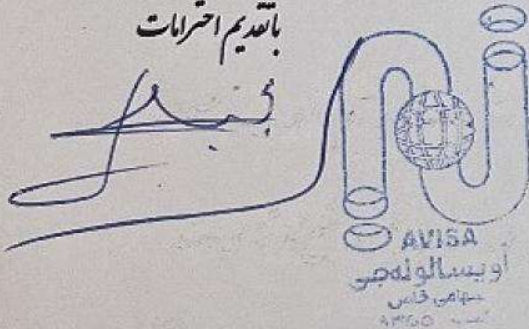 باتقدیم احترامات
AVISA
آویسالوله‌جی
سهامی خاص